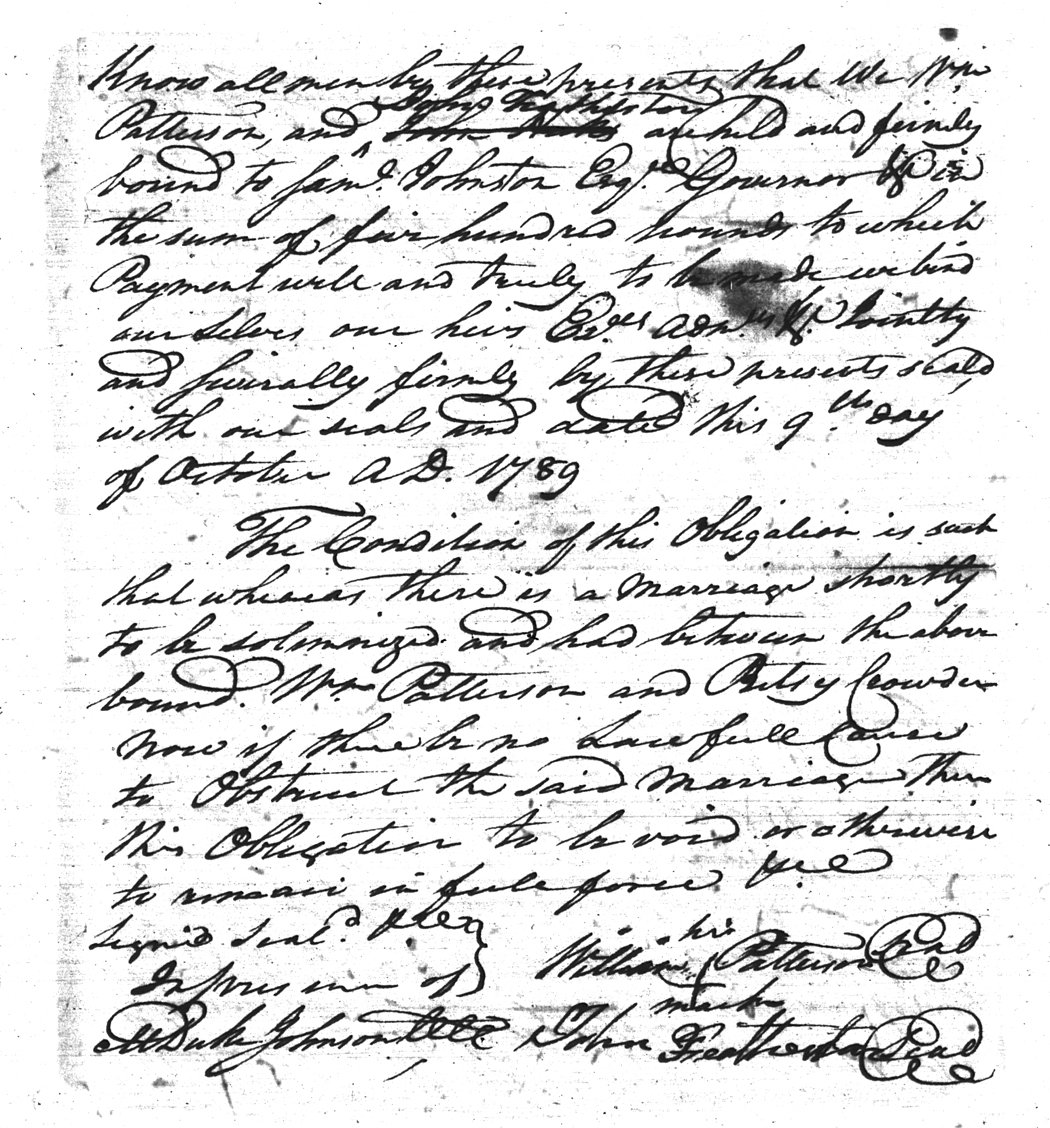 Know all men by these presents that We Wm
John Featherston
Patterson, and John Duke are held and firmly
bound to Saml. Johnston Esqr. Governor &c in
the sum of five hundred pounds to which
Payment well and truly to be made we bind
ourselves our heirs Exrs admrs &c Jointly
and severally firmly by these presents seald
with our seals and dated this 9th day
of October A D. 1789
The Condition of this Obligation is such
that whereas there is a Marriage shortly
to be solemnized and had between the above
bound. Wm Patterson and Betsey Crowder
Now if there be no Lawfull Cause
to Obstruct the said Marriage then
this Obligation to be void or otherwise
to remain in full force &c
Signed Seald.
his
William Patterson Seal
In presence of
mark
M Duke Johnson John Featherston Seal